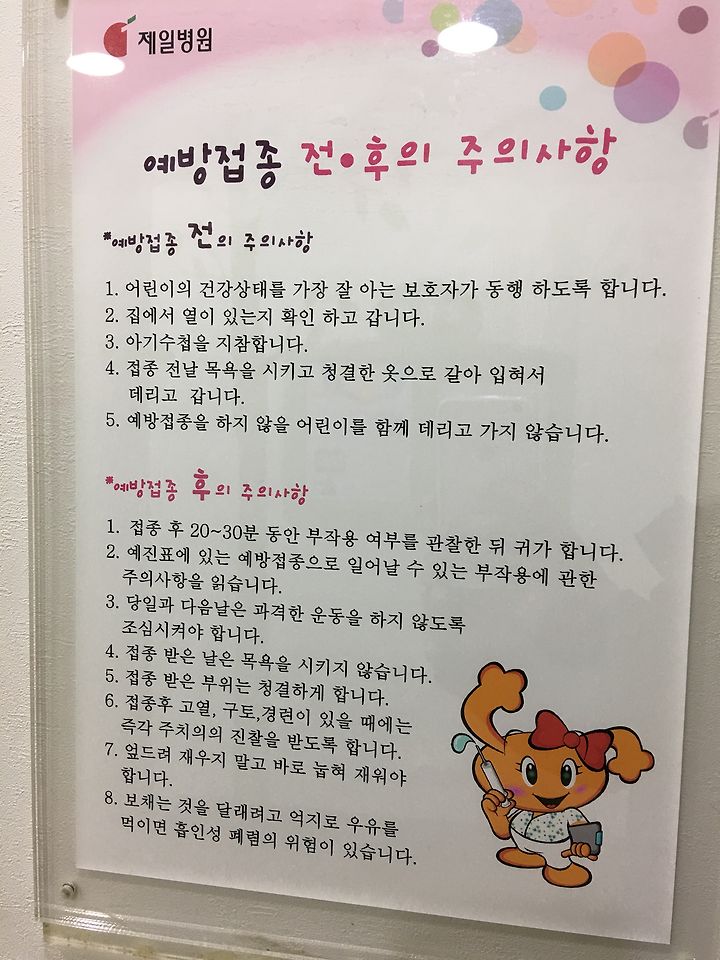 제일병원
예방접종 전·후의 주의사항
*예방접종 전의 주의사항
1. 어린이의 건강상태를 가장 잘 아는 보호자가 동행 하도록 합니다.
2. 집에서 열이 있는지 확인 하고 갑니다.
3. 아기수첩을 지참합니다.
4. 접종 전날 목욕을 시키고 청결한 옷으로 갈아 입혀서
데리고 갑니다.
5. 예방접종을 하지 않을 어린이를 함께 데리고 가지 않습니다.
*예방접종 후의 주의사항
1. 접종 후 20~30분 동안 부작용 여부를 관찰한 뒤 귀가 합니다.
2. 예진표에 있는 예방접종으로 일어날 수 있는 부작용에 관한
주의사항을 읽습니다.
3. 당일과 다음날은 과격한 운동을 하지 않도록
조심시켜야 합니다.
4. 접종 받은 날은 목욕을 시키지 않습니다.
5. 접종 받은 부위는 청결하게 합니다.
6. 접종후 고열, 구토,경련이 있을 때에는
즉각 주치의의 진찰을 받도록 합니다.
7. 엎드려 재우지 말고 바로 눕혀 재워야
합니다.
8. 보채는 것을 달래려고 억지로 우유를
먹이면 흡인성 폐렴의 위험이 있습니다.